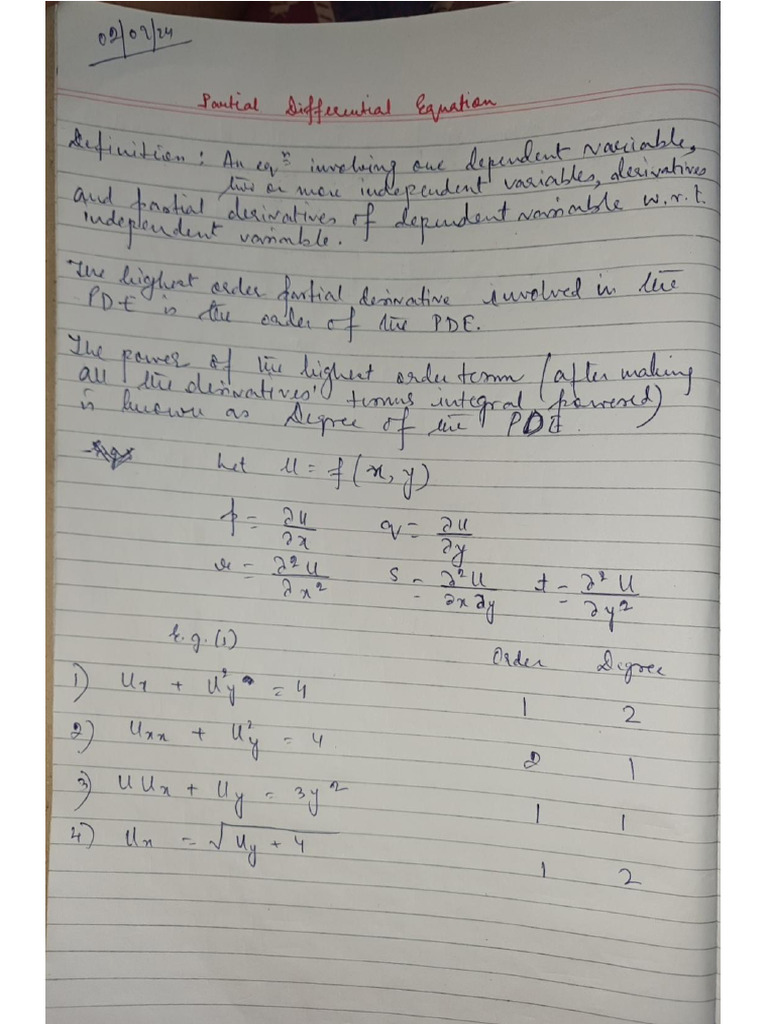 02/02/24
Partial Differential Equation
Definition: An eqⁿ involving one dependent variable,
two or more independent variables, derivatives
and partial derivatives of dependent variable w.r.t.
independent variable.
The highest order partial derivative involved in the
PDE is the order of the PDE.
The power of the highest order term (after making
all the derivatives' terms integral powered)
is known as Degree of the PDE.
Let u = f(x, y)
p = ∂u/∂x q = ∂u/∂y
r = ∂²u/∂x² s = ∂²u/∂x∂y t = ∂²u/∂y²
E.g.(1) Order Degree
1) Ux + U²y = 4 1 2
2) Uxx + U²y = 4 2 1
3) UUx + Uy = 3y² 1 1
4) Ux = √(Uy + 4) 1 2